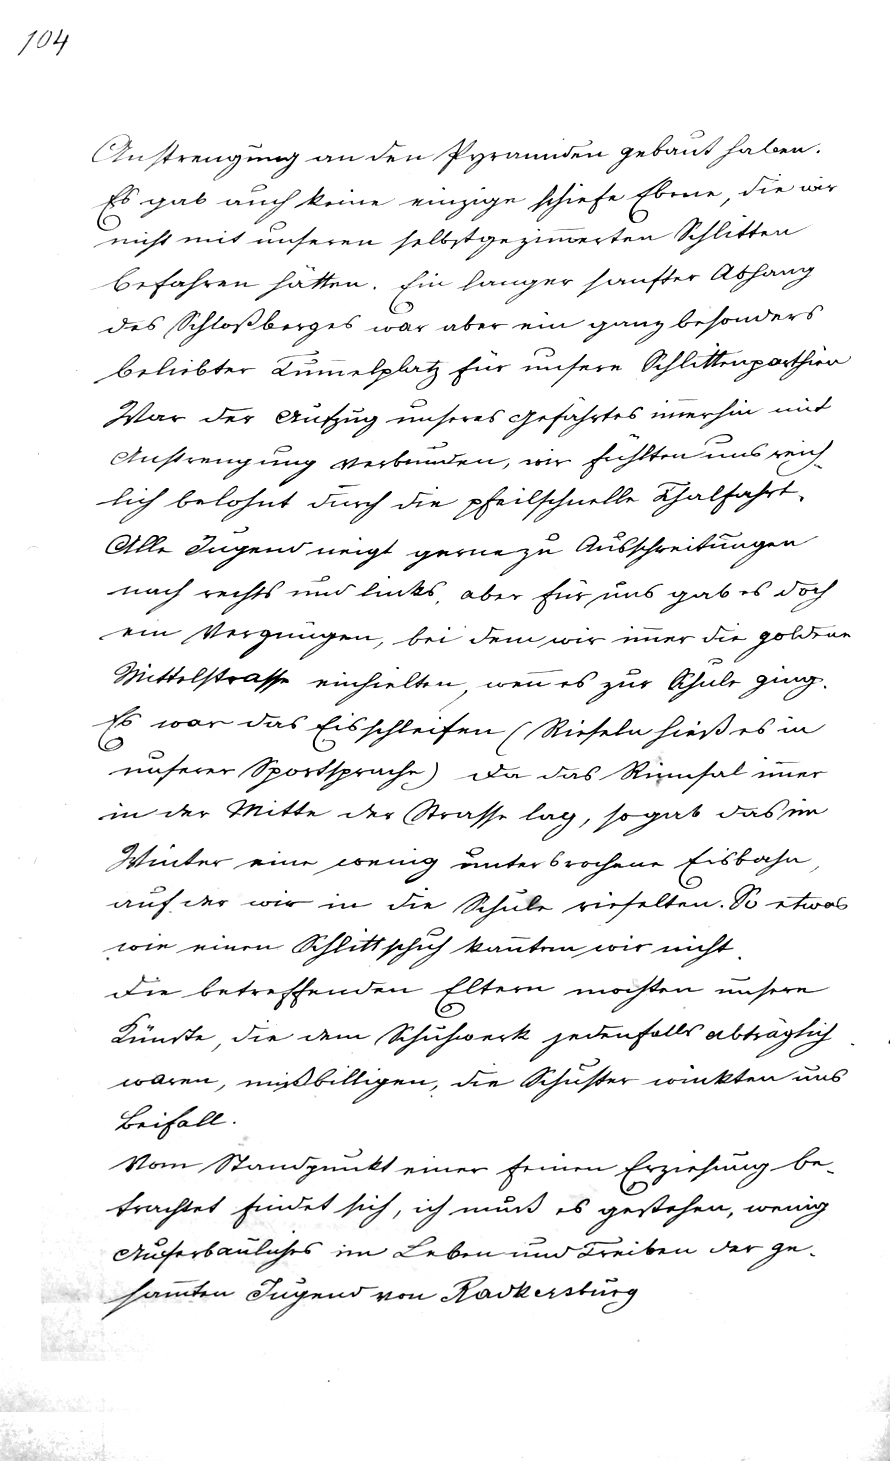 104
Anstrengung an den Pyramiden gebaut haben.
Es gab auch keine einzige schiefe Ebene, die wir
nicht mit unseren selbstgezim̄erten Schlitten
befahren hätten. Ein langer sanfter Abhang
des Schloßberges war aber ein ganz besonders
beliebter Tum̄elplatz für unsere Schlittenparthien
War der Aufzug unseres Gefährtes im̄erhin mit
Anstrengung verbunden, wir fühlten uns reich-
lich belohnt durch die pfeilschnelle Thalfahrt.
Alle Jugend neigt gerne zu Ausschreitungen
nach rechts und links, aber für uns gab es doch
ein Vergnügen, bei dem wir im̄er die goldene
Mittelstrasse einhielten, wen̄ es zur Schule ging.
Es war das Eisschleifen (Rieseln hieß es in
unserer Sportsprache) Da das Rinnsal im̄er
in der Mitte der Strasse lag, so gab das im
Winter eine wenig unterbrochene Eisbahn,
auf der wir in die Schule rieselten. So etwas
wie einen Schlittschuh kan̄ten wir nicht.
Die betreffenden Eltern mochten unsere
Künste, die dem Schuhwerk jedenfalls abträglich
waren, mißbilligen, die Schuster winkten uns
Beifall.
Vom Standpunkt einer feinen Erziehung be-
trachtet findet sich, ich muß es gestehen, wenig
Auferbauliches im Leben und Treiben der ge-
sam̄ten Jugend von Radkersburg